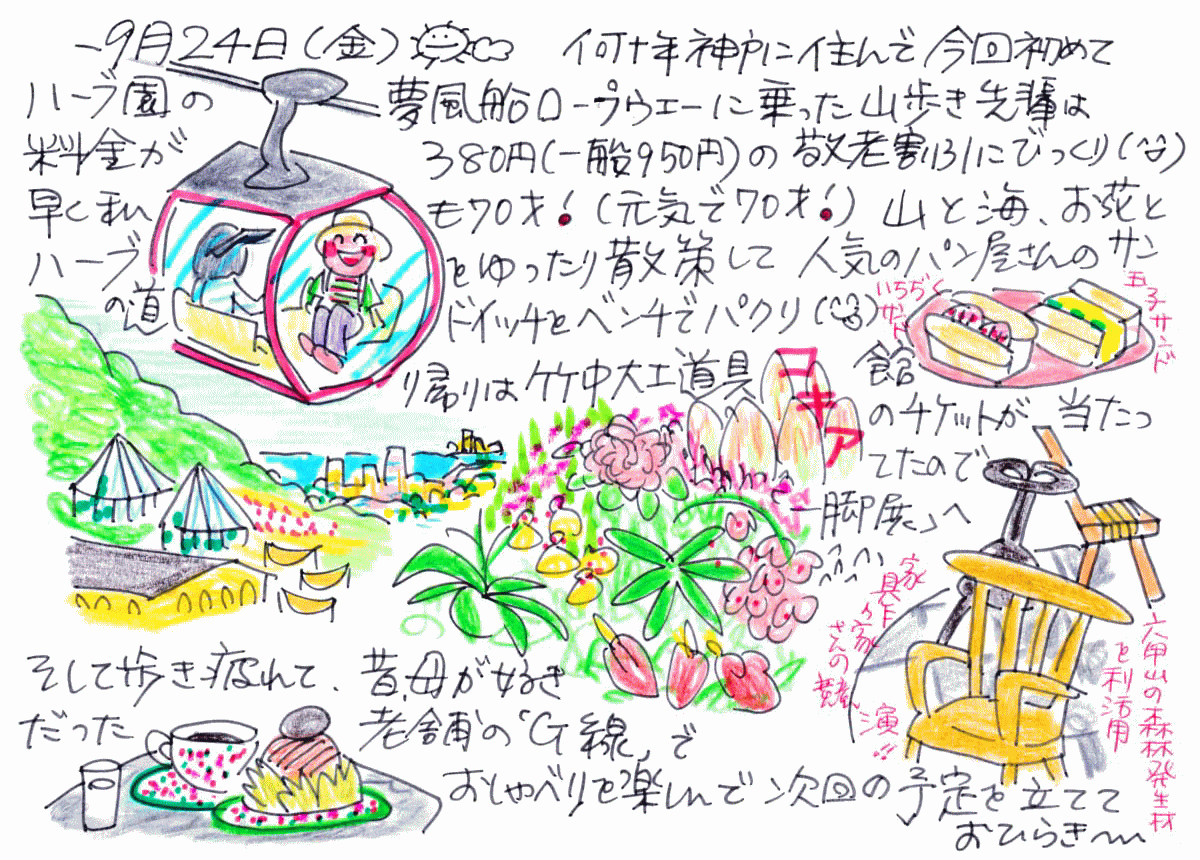 9月24日(金) 何十年神戸に住んで今回初めて
ハーブ園の夢風船ロープウェーに乗った山歩き先輩は
料金が380円(一般950円)の敬老割引にびっくり(^o^)
早く私も70才!(元気で70才!)山と海、お花と
ハーブをゆったり散策して人気のパン屋さんのサン
の道ドイッチをベンチでパクリ
いちぢくサンド
玉子サンド
り帰りは竹中大工道具館
コキア
のチケットが当たっ
てたので
一脚展」へ
家具作り家さんの競演!!
六甲山の森林発生材を利活用
そして歩き疲れて、昔、母が好き
だった老舗の「G線」で
おしゃべりを楽しんで次回の予定を立てて
おひらき〜